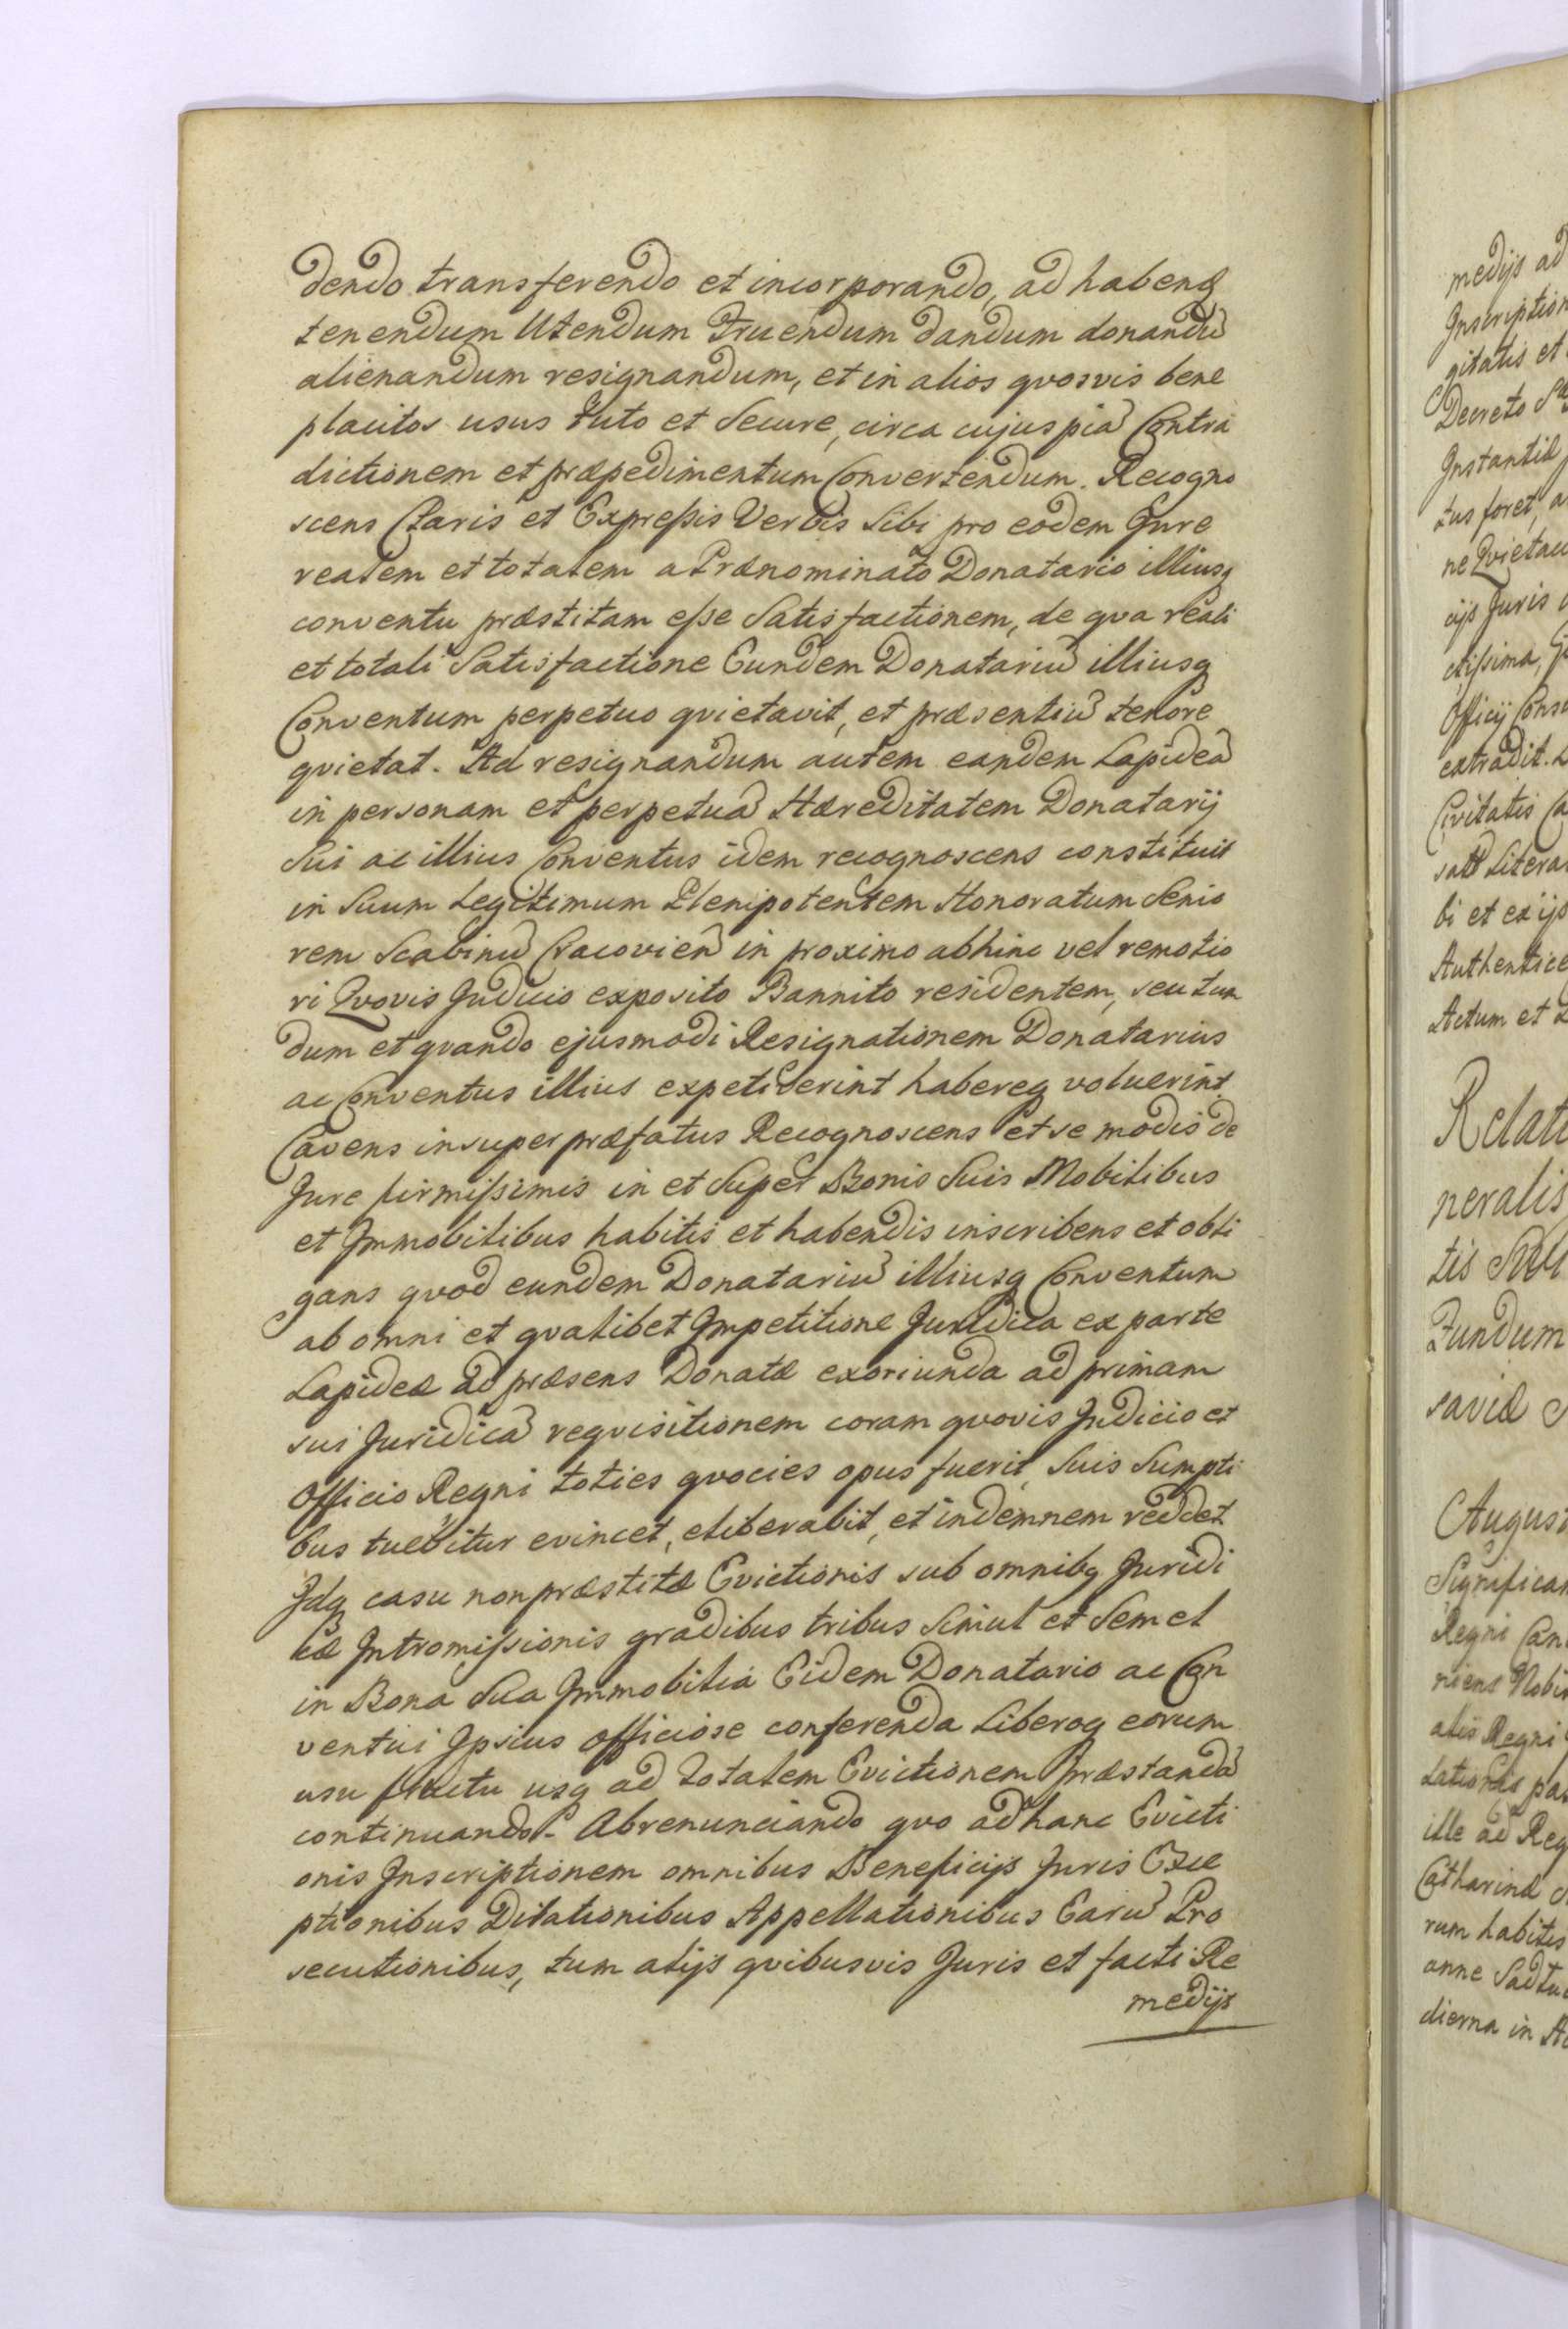 dendo transferendo et incorporando, ad habend
tenendum Utendum Fruendum dandum donandū
alienandum resignandum, et in alios qvosvis bene
placitos usus tuto et Secure, circa cujuspiā Contra
dictionem et præpedimentum Convertendum. Recogno
scens Claris et Expreſsis Verbis Sibi pro eodem Jure
realem et totalem a Prænominato Donatario illiusq
conventu præstitam eſse Satisfactionem, de qva reali
et totali Satisfactione Eundem Donatariū illiusq
Conventum perpetuo qvietavit, et præsentiū tenore
qvietat. Ad resignandum autem eandem Lapideā
in personam et perpetuā Hæreditatem Donatarij
Sui ac illius Conventus idem recognoscens constituit
in Suum Legitimum Plenipotentem Honoratum Senio
rem Scabinū Cracovien̄ in proximo abhinc vel remotio
ri Qvovis Judicio exposito Bannito residentem, seu tun
dum et qvando ejusmodi Resignationem Donatarius
ac Conventus illius expetiverint habereq voluerint
Cavens insuper præfatus Recognoscens et se modis de
Jure firmiſsimis in et Super Bonis Suis Mobilibus
et Immobilibus habitis et habendis inscribens et obli
gans qvod eundem Donatariū illiusq Conventum
ab omni et qvalibet Impetitione Juridica ex parte
Lapideæ ad præsens Donatæ exoriunda ad primam
sui Juridicā reqvisitionem coram qvovis Judicio et
Officio Regni toties qvocies opus fuerit, Suis Sumpti
bus tuebitur evincet, eliberabit, et indemnem reddet
Idq casu non præstitæ Evictionis sub omnibq Juridi
cæ Intromiſsionis gradibus tribus Simul et Semel
in Bona Sua Immobilia Eidem Donatario ac Con
ventui Ipsius officiose conferenda Liberoq eorum
usu fructu usq ad totalem Evictionem præstandā
continuando. Abrenunciando qvo ad hanc Evicti
onis Inscriptionem omnibus Beneficijs Juris Exce
ptionibus Dilationibus Appellationibus Earū Pro
secutionibus, tum alijs qvibusvis Juris et facti Re
medijs
medijs ad
Inscription
gitatis et
Decreto
Instantiæ
tus foret, a
ne Qvietac
cijs Juris
ctiſsima,
Officij Cons
extradit. L
Civitatis Ca
Litera
bi et ex ijs
Authentice
Actum et
Relati
neralis
tis
Fundum
saviæ
August
Significa
Regni Can
niens Nobi
alis Regni
Lationis pa
ille ad Reg
Catharinæ
rum habitis
anne
dierna in A